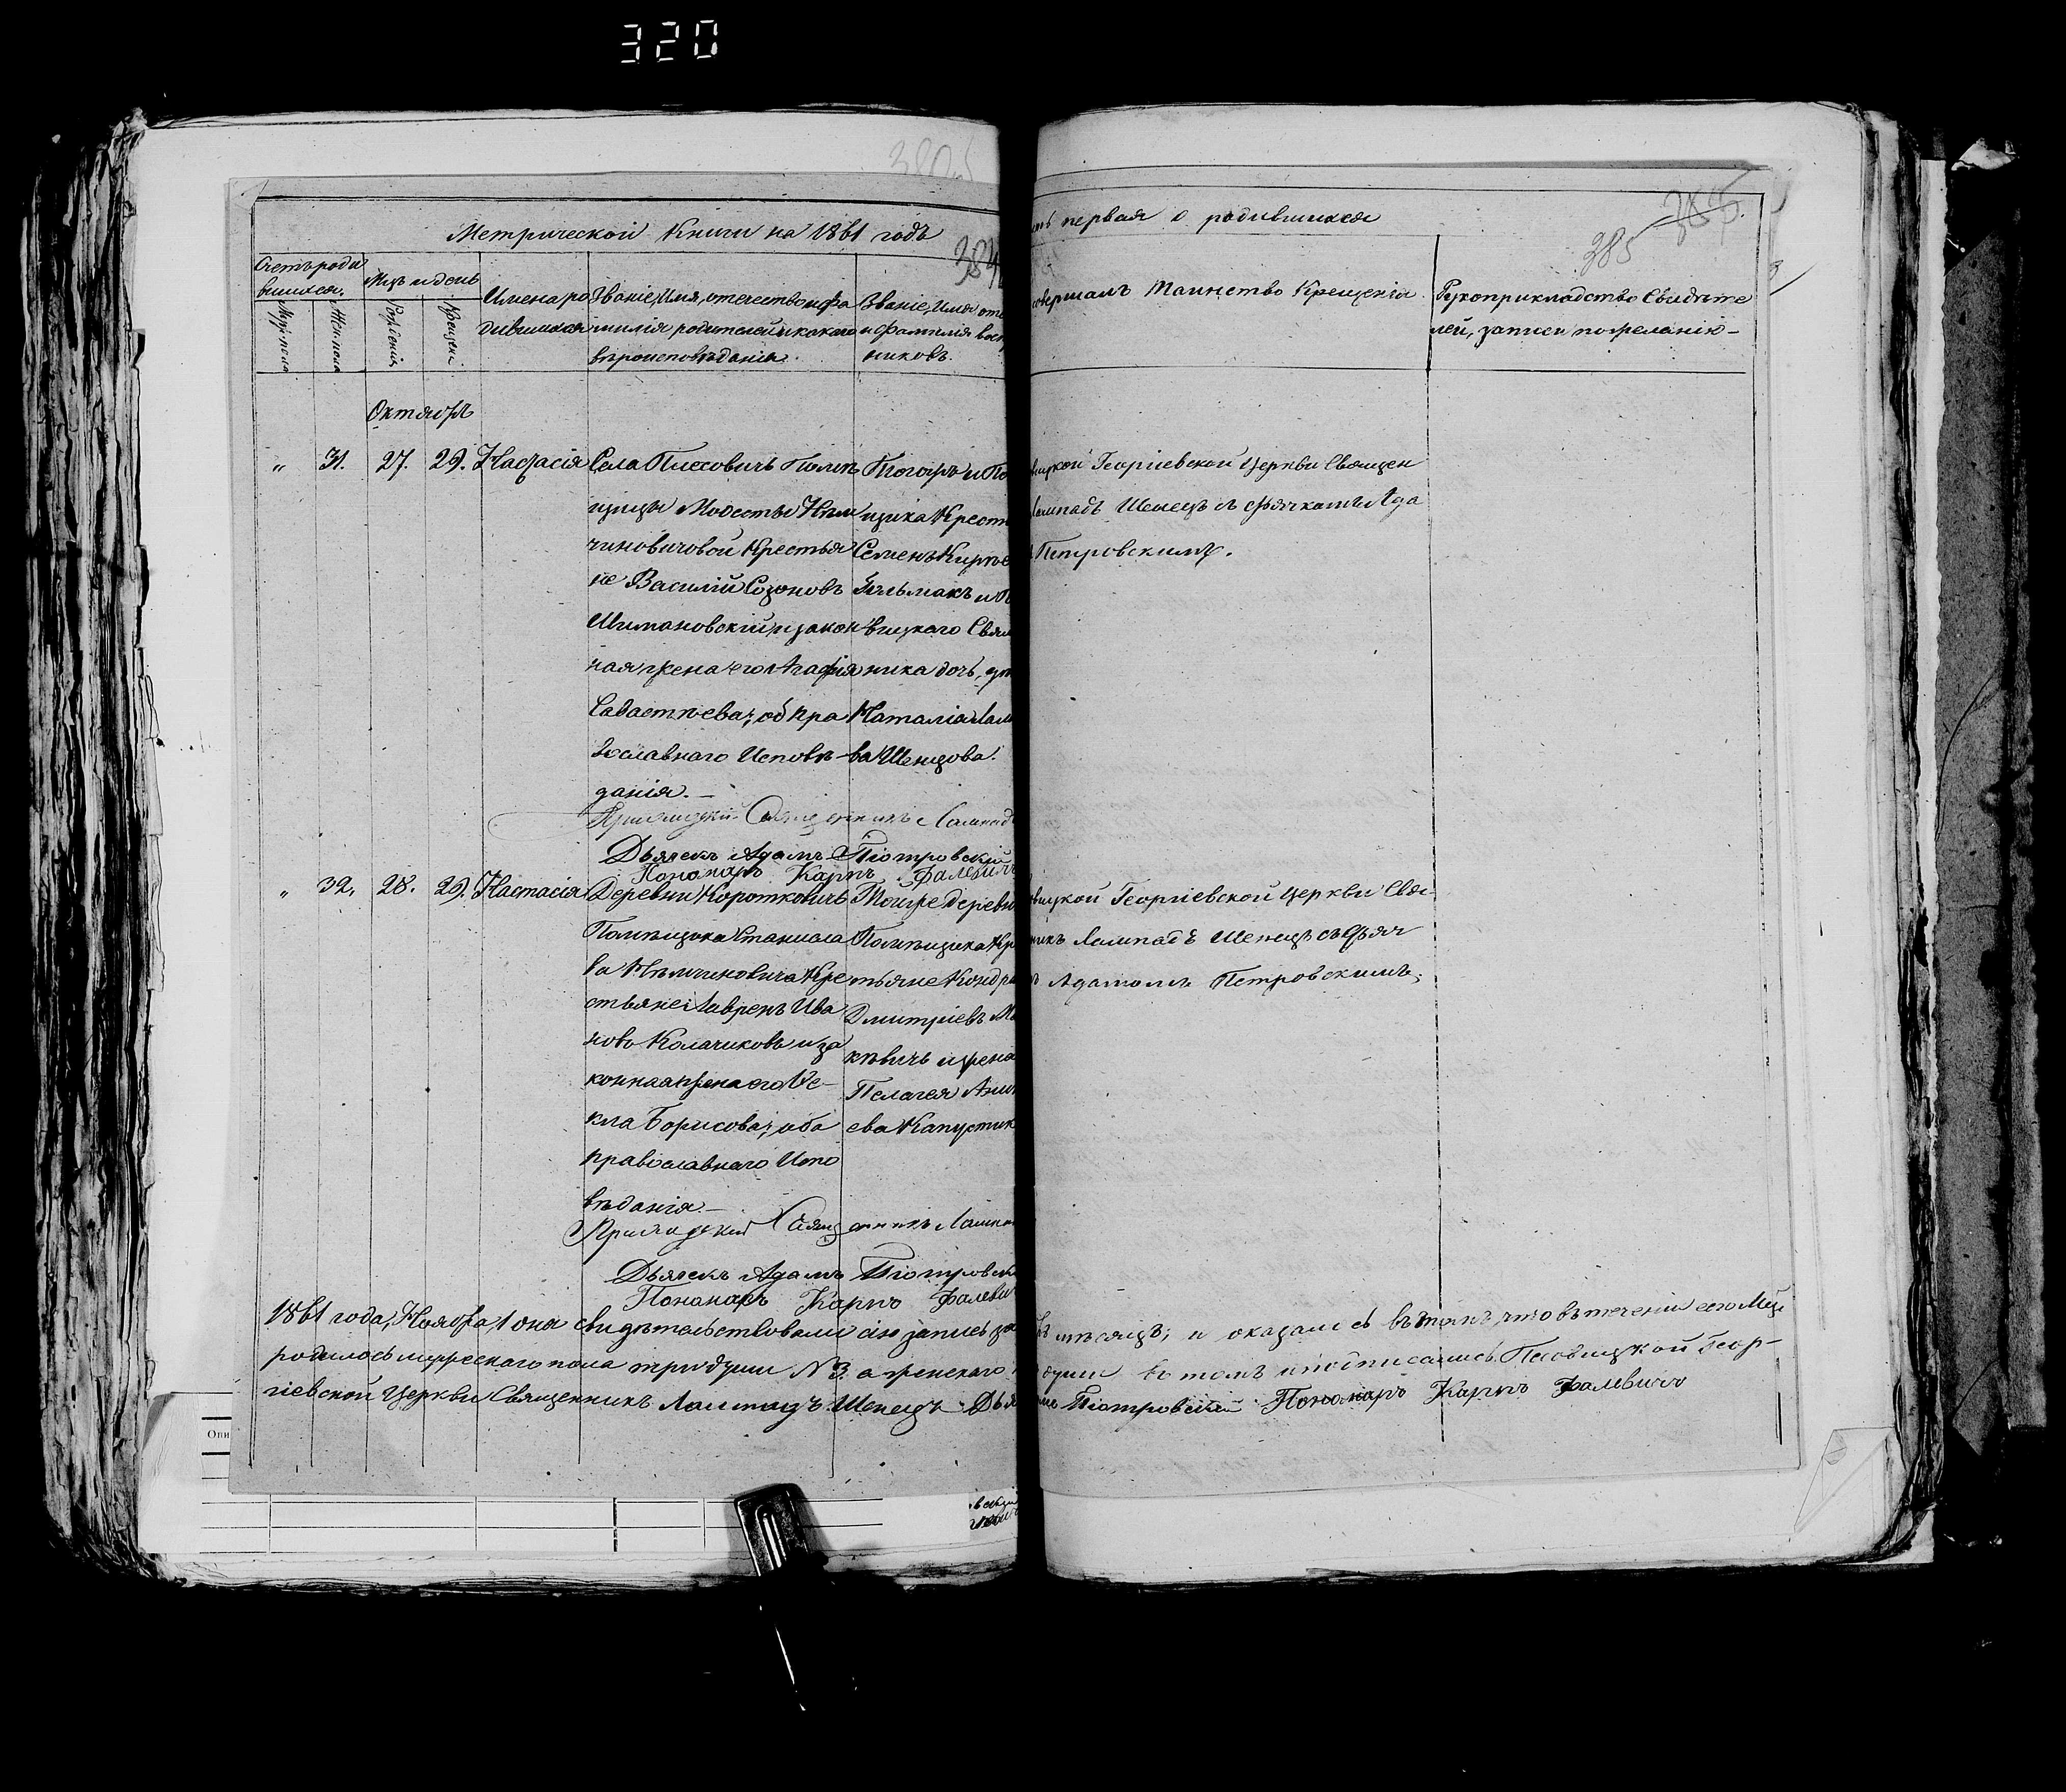 320
385
385
384
Метрической Книги на 1861 годъ
первая о родившихся
Счетъ роди
вшихся.
Муж. пола
Жен. пола
Мцъ и день
Рожденія
Крещен.
Имена ро
дившихся
Званіе, Имя, отечество и фа
милія родителей и какого
вѣроисповѣданія.
Званіе, Имя оте
и фамилія
никовъ.
совершалъ таинство Крещенія
Рукоприкладство Свидѣте
лей, записи по желанію
Октября
31. 27. 29. Настасія
Села Плесовичъ Помѣ
щицы Модесты Нѣм
чиновичовой Крестья
не Василій Созоновъ
Шимановскій, и закон
ная жена его Агафія
Савастѣева; об Пра
вославнаго Исповѣ
данія.
Тогожъ и По
щика Крест
Семенъ
и
вицкаго Свящ
ника дочь,
Наталія Лам
ва Шенцова.
вицкой Георгіевской Церкви Священ
Лампадъ Шенецъ съ дьячкомъ Ада
Петровскимъ.
Приходскій Священникъ Лампад
Дьячекъ Адамъ Піотровскій
Пономаръ Карпъ Фалевичъ
32. 28. 29. Настасія
Деревни Коротковичъ
Помѣщика Станисла
ва Нѣмчиновича Кре
стьяне Лаврен Ива
новъ Колачиковъ и за
конная жена его Ѳе
кла Борисова; оба
православнаго Испо
вѣданія.
Тойже деревни
Помѣщика Кр
тьяне Кондра
Дмитріевъ М
кѣвичъ и жена
Пелагея
ева Капустик
вицкой Георгіевской церкви Свя
никъ Лампадъ Шенецъ съ Дьяч
Адамомъ Петровскимъ;
Приходскій Священникъ Лампа
Дьячекъ Адамъ Піотровск
Пономаръ Карпъ Фалеви
1861 года, Ноября, 1 дня свидѣтельствовали сію запись за
мѣсяцъ; и оказалось въ томъ, что въ теченіи сего Мца
родилось мужескаго пола три души N 3. а женскаго
души въ томъ и подписались. Песовицкой Геор-
гіевской Церкви Священникъ Лампадъ Шенецъ Дья
Піотровскій Пономаръ Карпъ Фалевичъ
Опи